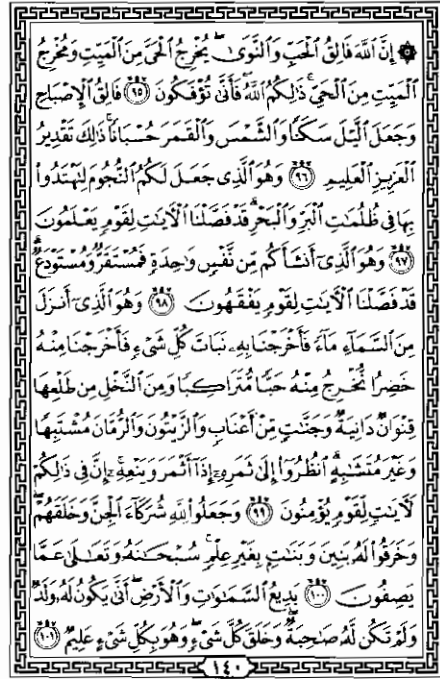 ۞ إِنَّ ٱللَّهَ فَالِقُ ٱلْحَبِّ وَٱلنَّوَىٰۖ يُخْرِجُ ٱلْحَىَّ مِنَ ٱلْمَيِّتِ وَمُخْرِجُ
ٱلْمَيِّتِ مِنَ ٱلْحَىِّۚ ذَٰلِكُمُ ٱللَّهُۖ فَأَنَّىٰ تُؤْفَكُونَ ٩٥ فَالِقُ ٱلْإِصْبَاحِ
وَجَعَلَ ٱلَّيْلَ سَكَنًا وَٱلشَّمْسَ وَٱلْقَمَرَ حُسْبَانًاۚ ذَٰلِكَ تَقْدِيرُ
ٱلْعَزِيزِ ٱلْعَلِيمِ ٩٦ وَهُوَ ٱلَّذِى جَعَلَ لَكُمُ ٱلنُّجُومَ لِتَهْتَدُوا۟
بِهَا فِى ظُلُمَٰتِ ٱلْبَرِّ وَٱلْبَحْرِۗ قَدْ فَصَّلْنَا ٱلْءَايَٰتِ لِقَوْمٍ يَعْلَمُونَ
٩٧ وَهُوَ ٱلَّذِىٓ أَنشَأَكُم مِّن نَّفْسٍ وَٰحِدَةٍ فَمُسْتَقَرٌّ وَمُسْتَوْدَعٌۗ
قَدْ فَصَّلْنَا ٱلْءَايَٰتِ لِقَوْمٍ يَفْقَهُونَ ٩٨ وَهُوَ ٱلَّذِىٓ أَنزَلَ
مِنَ ٱلسَّمَآءِ مَآءً فَأَخْرَجْنَا بِهِۦ نَبَاتَ كُلِّ شَىْءٍ فَأَخْرَجْنَا مِنْهُ
خَضِرًا نُّخْرِجُ مِنْهُ حَبًّا مُّتَرَاكِبًا وَمِنَ ٱلنَّخْلِ مِن طَلْعِهَا
قِنْوَانٌ دَانِيَةٌ وَجَنَّٰتٍ مِّنْ أَعْنَابٍ وَٱلزَّيْتُونَ وَٱلرُّمَّانَ مُشْتَبِهًا
وَغَيْرَ مُتَشَٰبِهٍۗ ٱنظُرُوٓا۟ إِلَىٰ ثَمَرِهِۦٓ إِذَآ أَثْمَرَ وَيَنْعِهِۦٓۚ إِنَّ فِى ذَٰلِكُمْ
لَءَايَٰتٍ لِّقَوْمٍ يُؤْمِنُونَ ٩٩ وَجَعَلُوا۟ لِلَّهِ شُرَكَآءَ ٱلْجِنَّ وَخَلَقَهُمْۖ
وَخَرَقُوا۟ لَهُۥ بَنِينَ وَبَنَٰتٍۭ بِغَيْرِ عِلْمٍۚ سُبْحَٰنَهُۥ وَتَعَٰلَىٰ عَمَّا
يَصِفُونَ ١٠٠ بَدِيعُ ٱلسَّمَٰوَٰتِ وَٱلْأَرْضِۖ أَنَّىٰ يَكُونُ لَهُۥ وَلَدٌ
وَلَمْ تَكُن لَّهُۥ صَٰحِبَةٌۖ وَخَلَقَ كُلَّ شَىْءٍۖ وَهُوَ بِكُلِّ شَىْءٍ عَلِيمٌ ١٠١
١٤٠